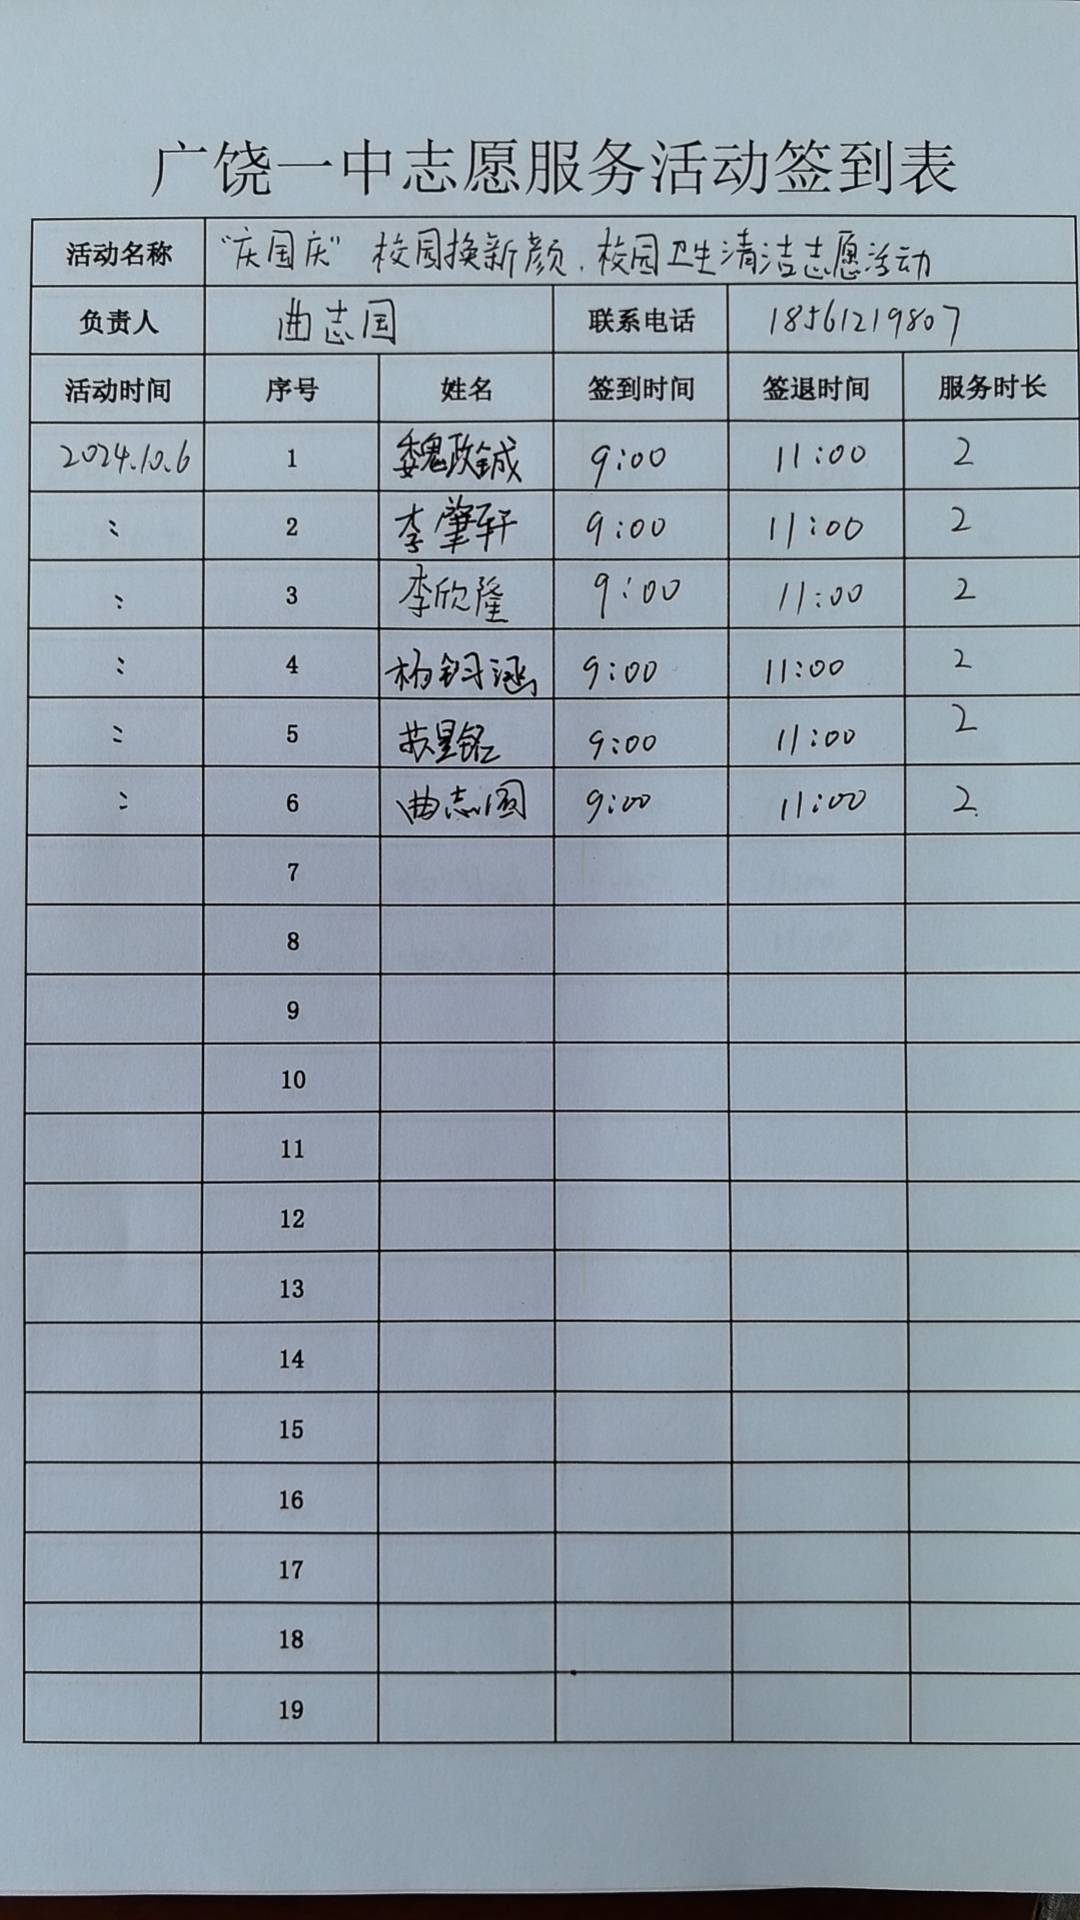 广饶一中志愿服务活动签到表
活动名称 “庆国庆” 校园换新颜，校园卫生清洁志愿活动
负责人 曲志国 联系电话 18561219807
活动时间 序号 姓名 签到时间 签退时间 服务时长
2024.10.6 1 魏政铖 9:00 11:00 2
: 2 李肇轩 9:00 11:00 2
: 3 李欣隆 9:00 11:00 2
: 4 杨涵 9:00 11:00 2
: 5 苏星铭 9:00 11:00 2
: 6 曲志国 9:00 11:00 2
7
8
9
10
11
12
13
14
15
16
17
18
19